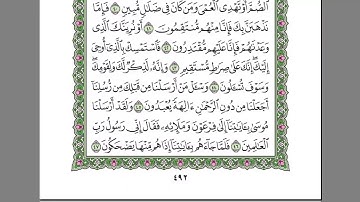 ٱلصُّمَّ أَوْ تَهْدِي ٱلْعُمْيَ وَمَن كَانَ فِي ضَلَٰلٖ مُّبِينٖ ٤٠ فَإِمَّا
نَذْهَبَنَّ بِكَ فَإِنَّا مِنْهُم مُّنتَقِمُونَ ٤١ أَوْ نُرِيَنَّكَ ٱلَّذِي
وَعَدْنَٰهُمْ فَإِنَّا عَلَيْهِم مُّقْتَدِرُونَ ٤٢ فَٱسْتَمْسِكْ بِٱلَّذِيٓ أُوحِيَ
إِلَيْكَۖ إِنَّكَ عَلَىٰ صِرَٰطٖ مُّسْتَقِيمٖ ٤٣ وَإِنَّهُۥ لَذِكْرٞ لَّكَ وَلِقَوْمِكَۖ
وَسَوْفَ تُسْـَٔلُونَ ٤٤ وَسْـَٔلْ مَنْ أَرْسَلْنَا مِن قَبْلِكَ مِن رُّسُلِنَآ
أَجَعَلْنَا مِن دُونِ ٱلرَّحْمَٰنِ ءَالِهَةٗ يُعْبَدُونَ ٤٥ وَلَقَدْ أَرْسَلْنَا
مُوسَىٰ بِـَٔايَٰتِنَآ إِلَىٰ فِرْعَوْنَ وَمَلَإِيْهِۦ فَقَالَ إِنِّي رَسُولُ رَبِّ
ٱلْعَٰلَمِينَ ٤٦ فَلَمَّا جَآءَهُم بِـَٔايَٰتِنَآ إِذَا هُم مِّنْهَا يَضْحَكُونَ ٤٧
٤٩٢